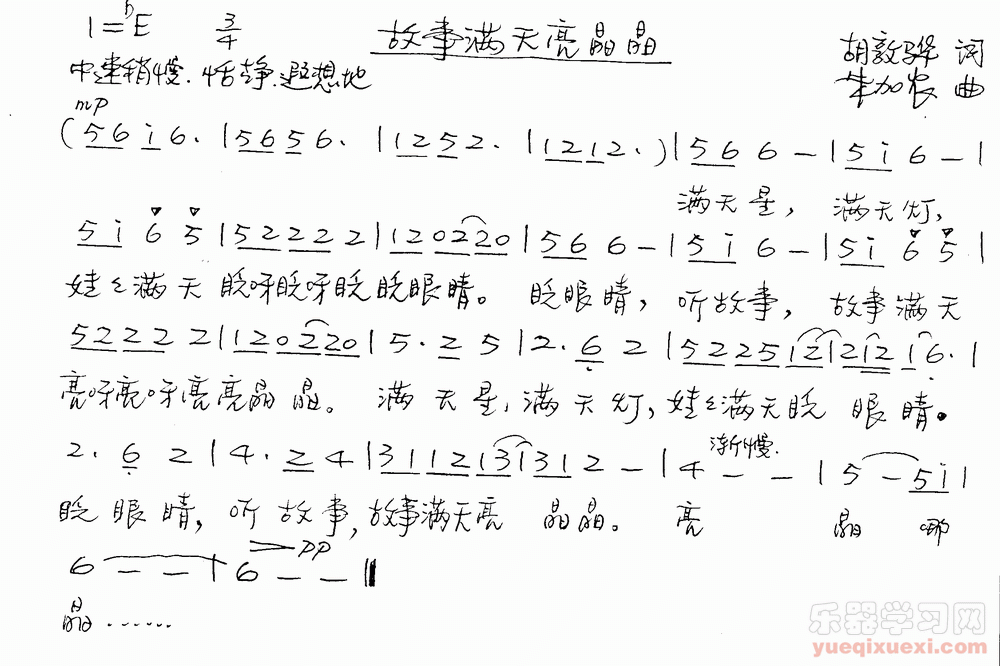 1=♭E 3/4 故事满天亮晶晶
胡敦骅 词
中速稍慢.恬静.遐想地
朱加农 曲
mp
(5 6 i 6. | 5 6 5 6. | 1 2 5 2. | 1 2 1 2. ) | 5 6 6 - | 5 i 6 - |
满天星， 满天灯，
5 i 6 5 | 5 2 2 2 2 | 1 2 0 2 2 0 | 5 6 6 - | 5 i 6 - | 5 i 6 5 |
娃々满天 眨呀眨呀眨眨眼睛。 眨眼睛， 听故事， 故事满天
5 2 2 2 2 | 1 2 0 2 2 0 | 5. 2 5 | 2. 6 2 | 5 2 2 5 1 2 | 2 1 2 1 6. |
亮呀亮呀亮亮晶晶。 满天星，满天灯，娃々满天眨 眼睛。
渐慢.
2. 6 2 | 4. 2 4 | 3 1 1 2 1 3 1 3 1 2 - | 4 - - | 5 - 5 i |
眨眼睛， 听故事，故事满天亮 晶晶。 亮 晶 哪
pp
6 - - | 6 - - ‖
晶......
乐器学习网
yueqixuexi.com